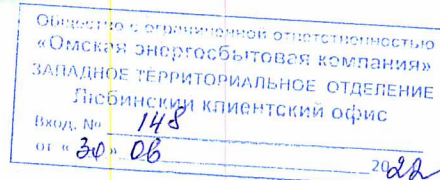 Общество с ограниченной ответственностью
«Омская энергосбытовая компания»
ЗАПАДНОЕ ТЕРРИТОРИАЛЬНОЕ ОТДЕЛЕНИЕ
Любинский клиентский офис
Вход. № 148
от «30» 06 2022